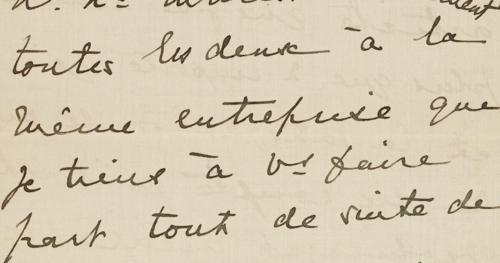 toutes les deux à la
même entreprise que
je tiens à vs faire
part tout de suite de